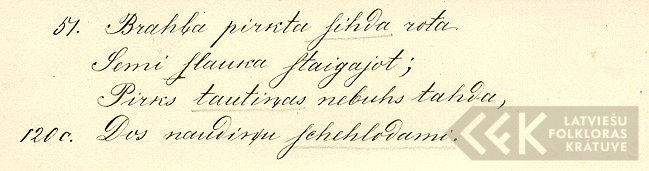 51. Brahļa pirkta sihda rota
Semi slauka staigajot;
Pirks tautiņas nebuhs tahda,
120c. Dos naudiņu schehlodami.
LATVIEŠU
FOLKLORAS
KRĀTUVE